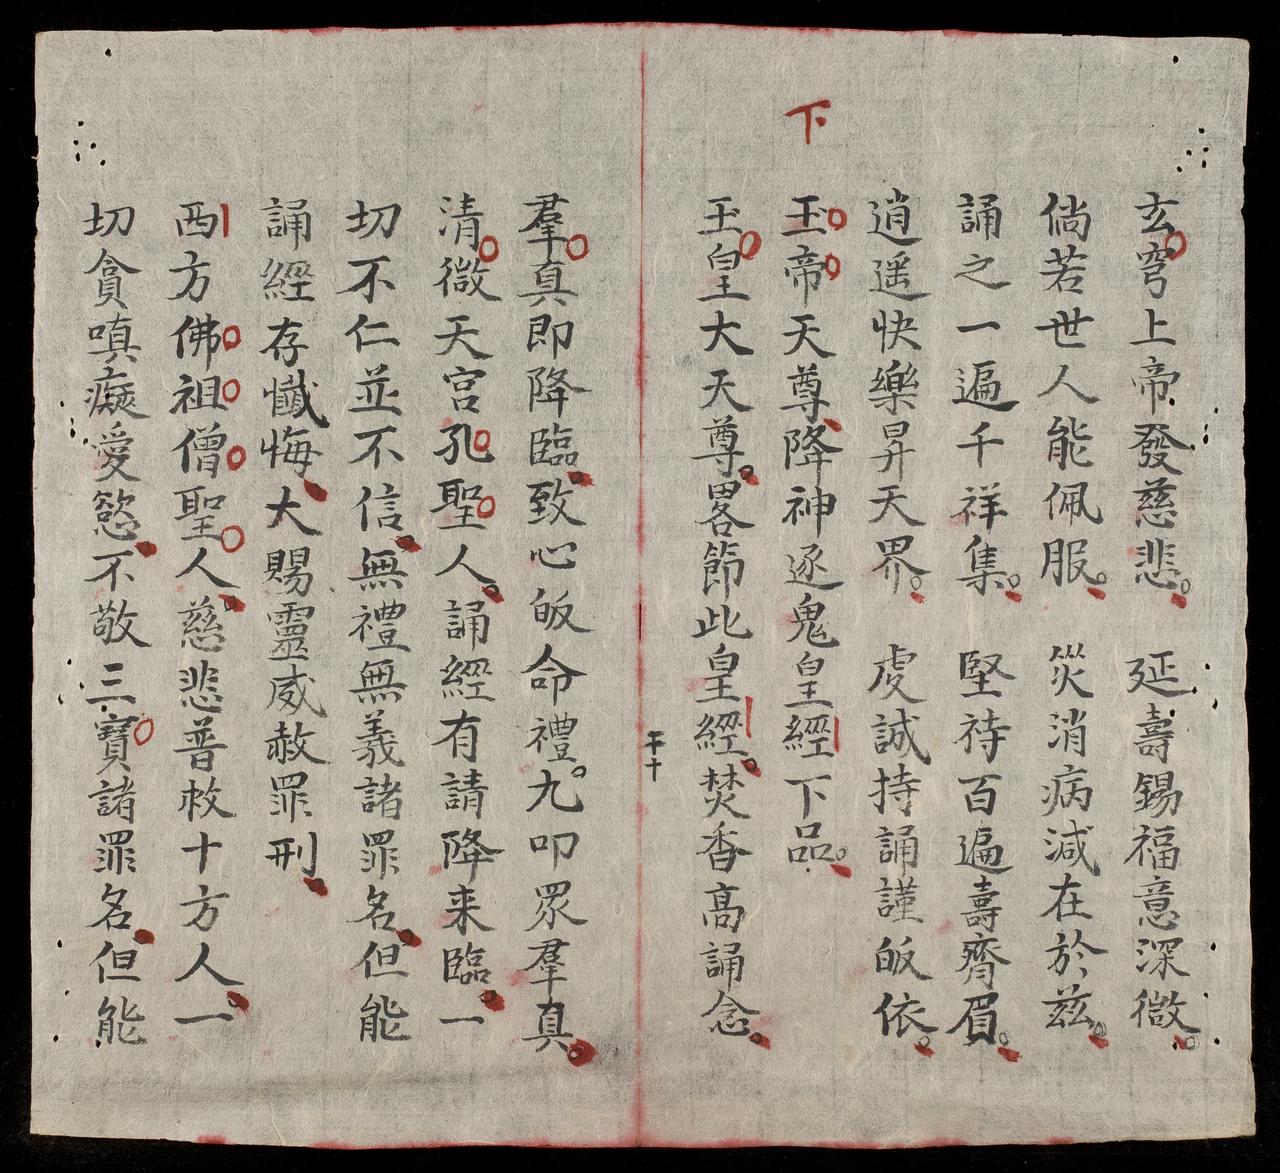 玄穹上帝發慈悲。延壽錫福意深微。
倘若世人能佩服。災消病減在於茲。
誦之一遍千祥集。堅待百遍壽齊眉。
逍遥快樂昇天界。虔誠持誦謹皈依。
下
玉帝天尊降神逐鬼皇經下品。
玉皇大天尊。畧節此皇經。焚香高誦念。
羣真即降臨。致心皈命禮。九叩眾羣真。
清微天宮孔聖人。誦經有請降来臨。一
切不仁並不信。無禮無義諸罪名。但能
誦經存懺悔大賜靈威赦罪刑
西方佛祖僧聖人。慈悲普救十方人。一
切貪嗔癡愛慾不敬三寶諸罪名但能